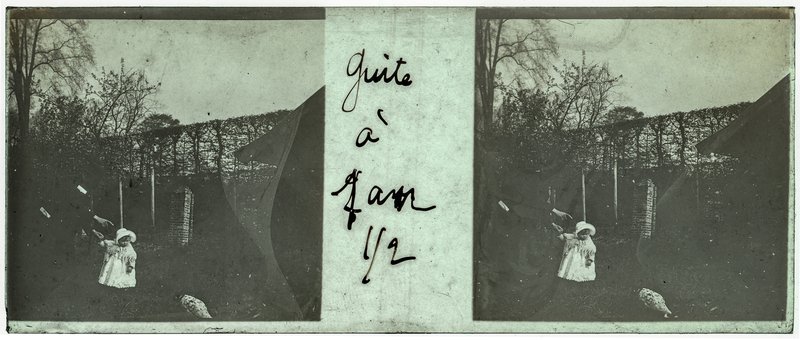 Guite
à
Jam
1/2